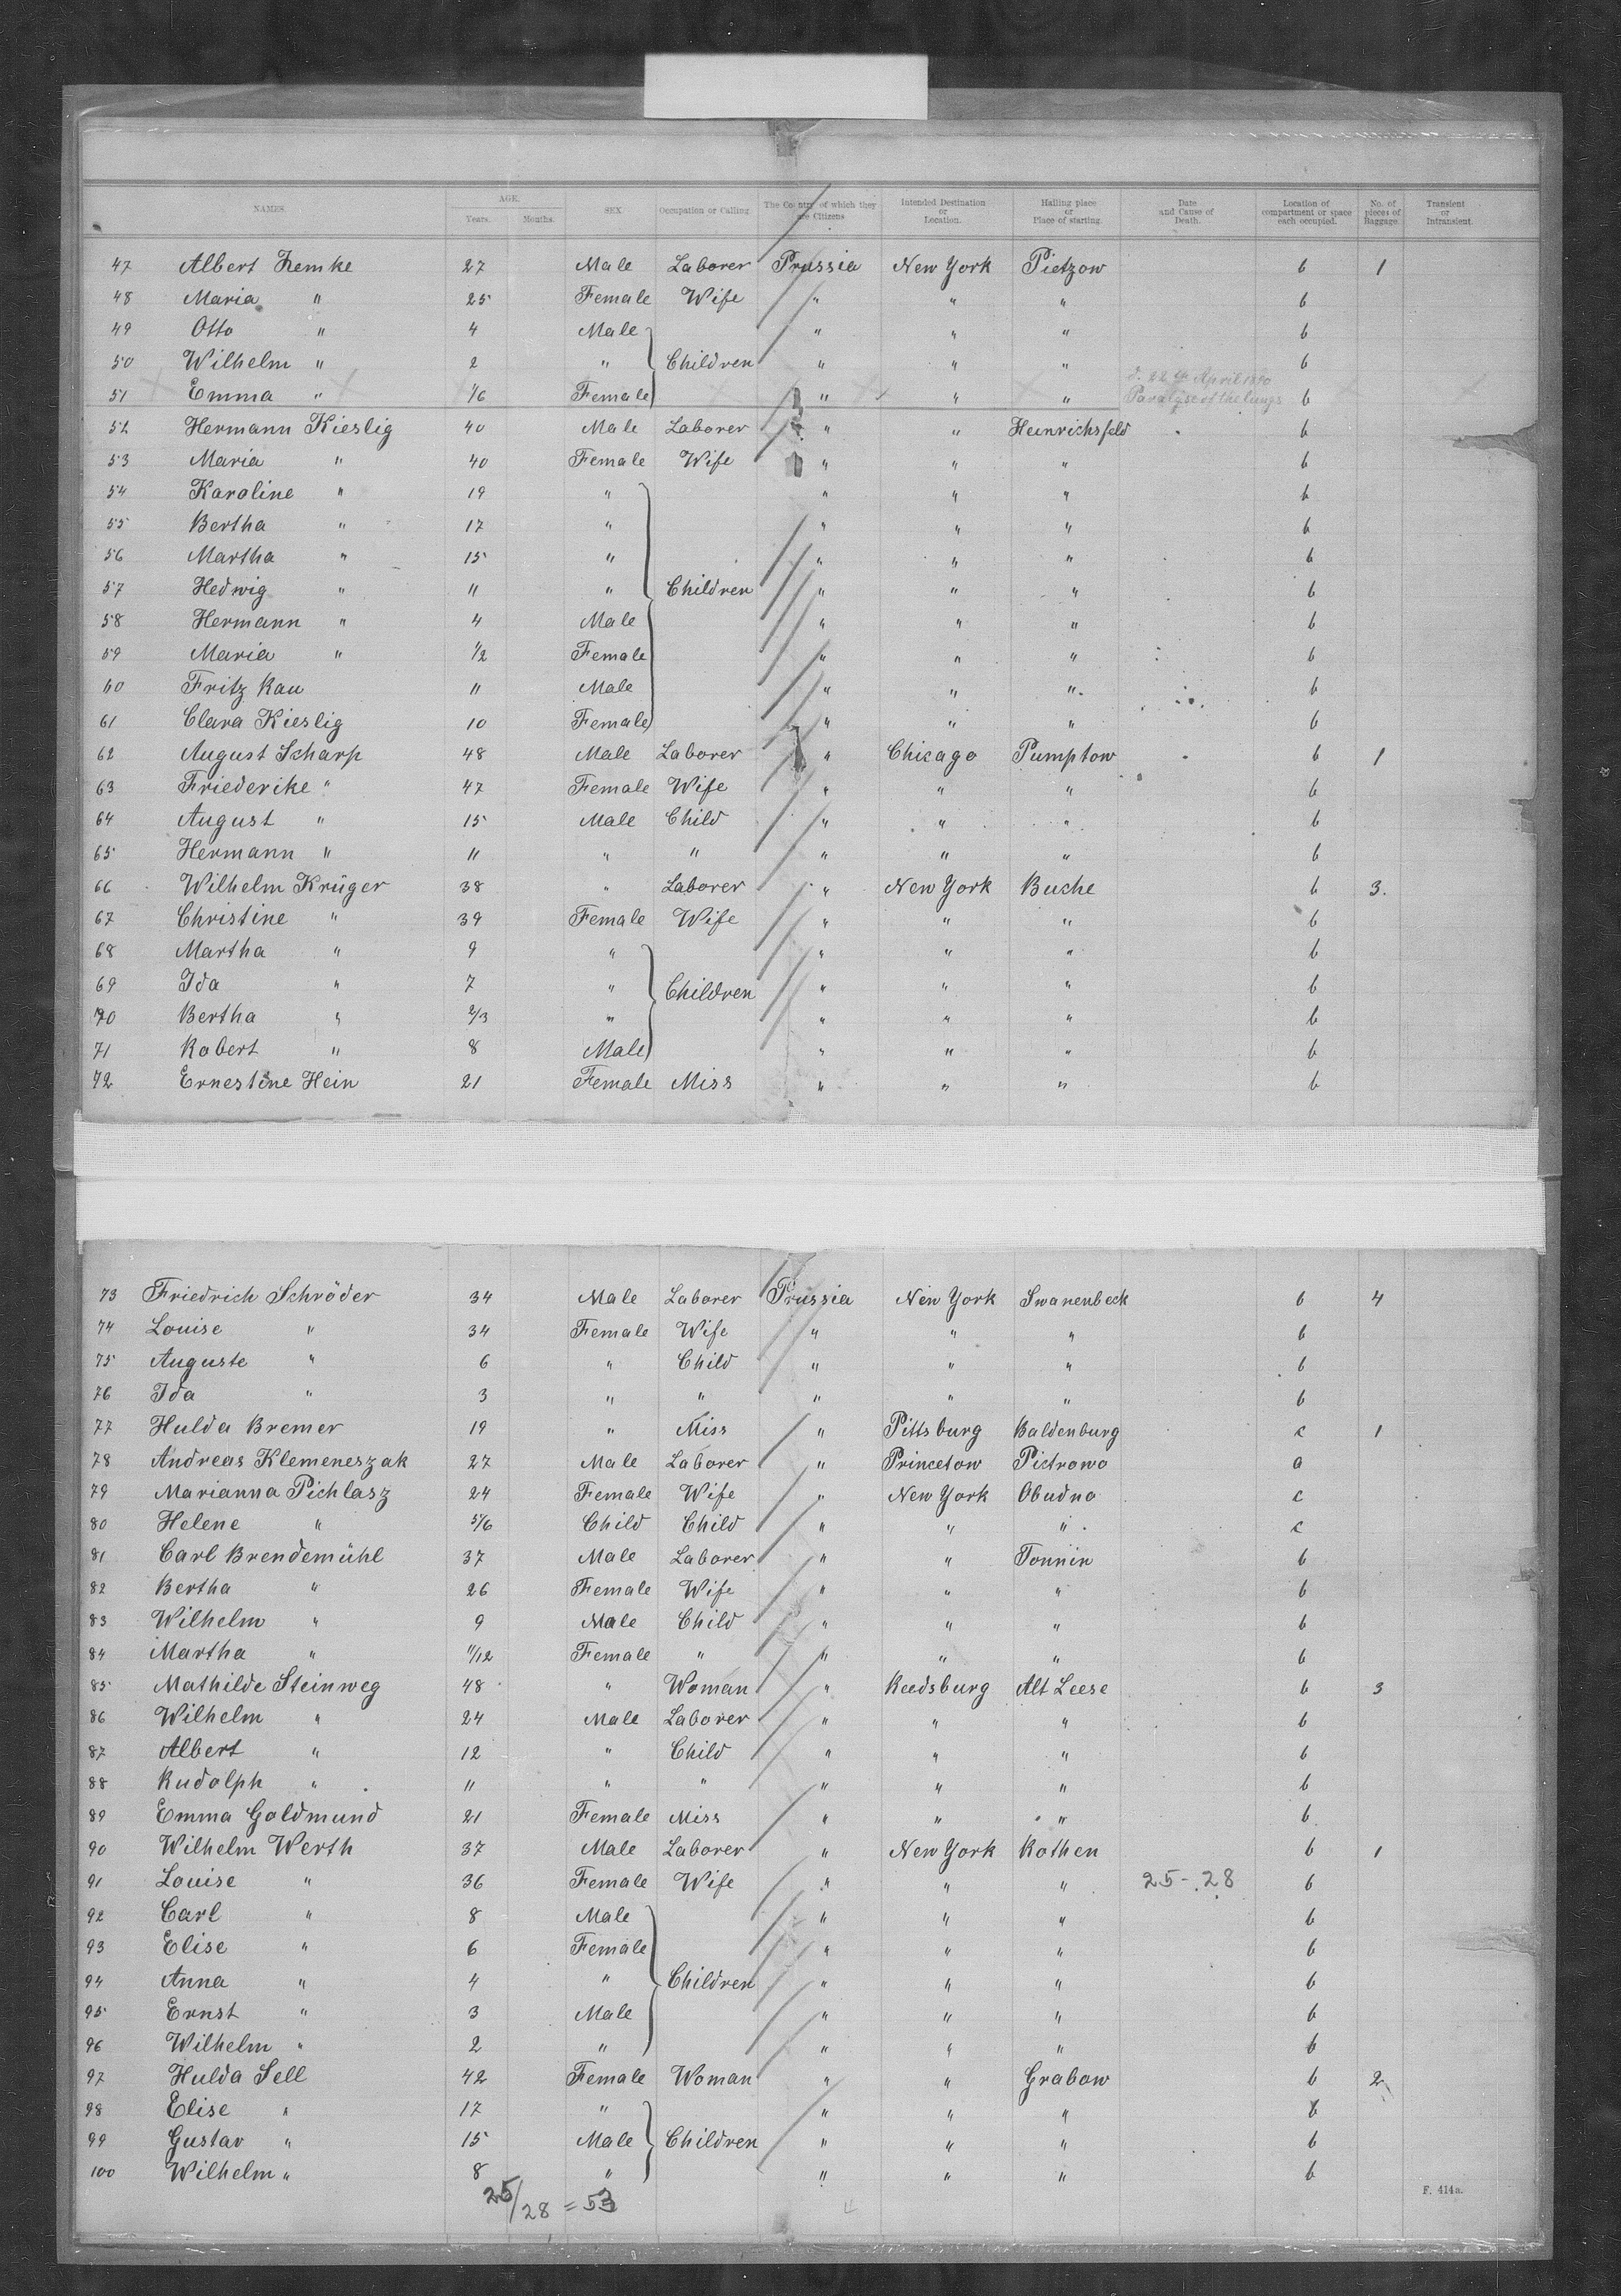 NAMES. AGE. Years. Months. SEX. Occupation or Calling. The Country of which they are Citizens Intended Destination or Location. Hailing place or Place of starting. Date and Cause of Death. Location of compartment or space each occupied. No. of pieces of Baggage. Transient or Intransient.
47 Albert Zemke 27 Male Laborer Prussia New York Pietzow b 1
48 Maria " 25 Female Wife " " " b
49 Otto " 4 Male " " " b
50 Wilhelm " 2 " Children " " " b
51 Emma " 1/6 Female " " " d. 22th April 1890 Paralyse of the lungs b
52 Hermann Kieslig 40 Male Laborer " " Heinrichsfeld b
53 Maria " 40 Female Wife " " " b
54 Karoline " 19 " " " " b
55 Bertha " 17 " " " " b
56 Martha " 15 " " " " b
57 Hedwig " 11 " Children " " " b
58 Hermann " 4 Male " " " b
59 Maria " 1/2 Female " " " b
60 Fritz Rau 11 Male " " " b
61 Clara Kieslig 10 Female " " " b
62 August Scharp 48 Male Laborer " Chicago Pumptow b 1
63 Friederike " 47 Female Wife " " " b
64 August " 15 Male Child " " " b
65 Hermann " 11 " " " " " b
66 Wilhelm Krüger 38 " Laborer " New York Buche b 3.
67 Christine " 39 Female Wife " " " b
68 Martha " 9 " " " " b
69 Ida " 7 " Children " " " b
70 Bertha " 2/3 " " " " b
71 Robert " 8 Male " " " b
72 Ernestine Hein 21 Female Miss " " " b
73 Friedrich Schröder 34 Male Laborer Prussia New York Swanenbeck b 4
74 Louise " 34 Female Wife " " " b
75 Auguste " 6 " Child " " " b
76 Ida " 3 " " " " " b
77 Hulda Bremer 19 " Miss " Pittsburg Baldenburg c 1
78 Andreas Klemeneszak 27 Male Laborer " Princetow Pietrowo a
79 Marianna Pichlasz 24 Female Wife " New York Obudno c
80 Helene " 5/6 Child Child " " " c
81 Carl Brendemühl 37 Male Laborer " " Tonnin b
82 Bertha " 26 Female Wife " " " b
83 Wilhelm " 9 Male Child " " " b
84 Martha " 11/12 Female " " " " b
85 Mathilde Steinweg 48 " Woman " Reedsburg Alt Leese b 3
86 Wilhelm " 24 Male Laborer " " " b
87 Albert " 12 " Child " " " b
88 Rudolph " 11 " " " " " b
89 Emma Goldmund 21 Female Miss " " " b
90 Wilhelm Werth 37 Male Laborer " New York Rothen b 1
91 Louise " 36 Female Wife " " " 25-28 b
92 Carl " 8 Male " " " b
93 Elise " 6 Female " " " b
94 Anna " 4 " Children " " " b
95 Ernst " 3 Male " " " b
96 Wilhelm " 2 " " " " b
97 Hulda Sell 42 Female Woman " " Grabow b 2
98 Elise " 17 " " " " b
99 Gustav " 15 Male Children " " " b
100 Wilhelm " 8 " " " " b
25/28 = 53
F. 414a.